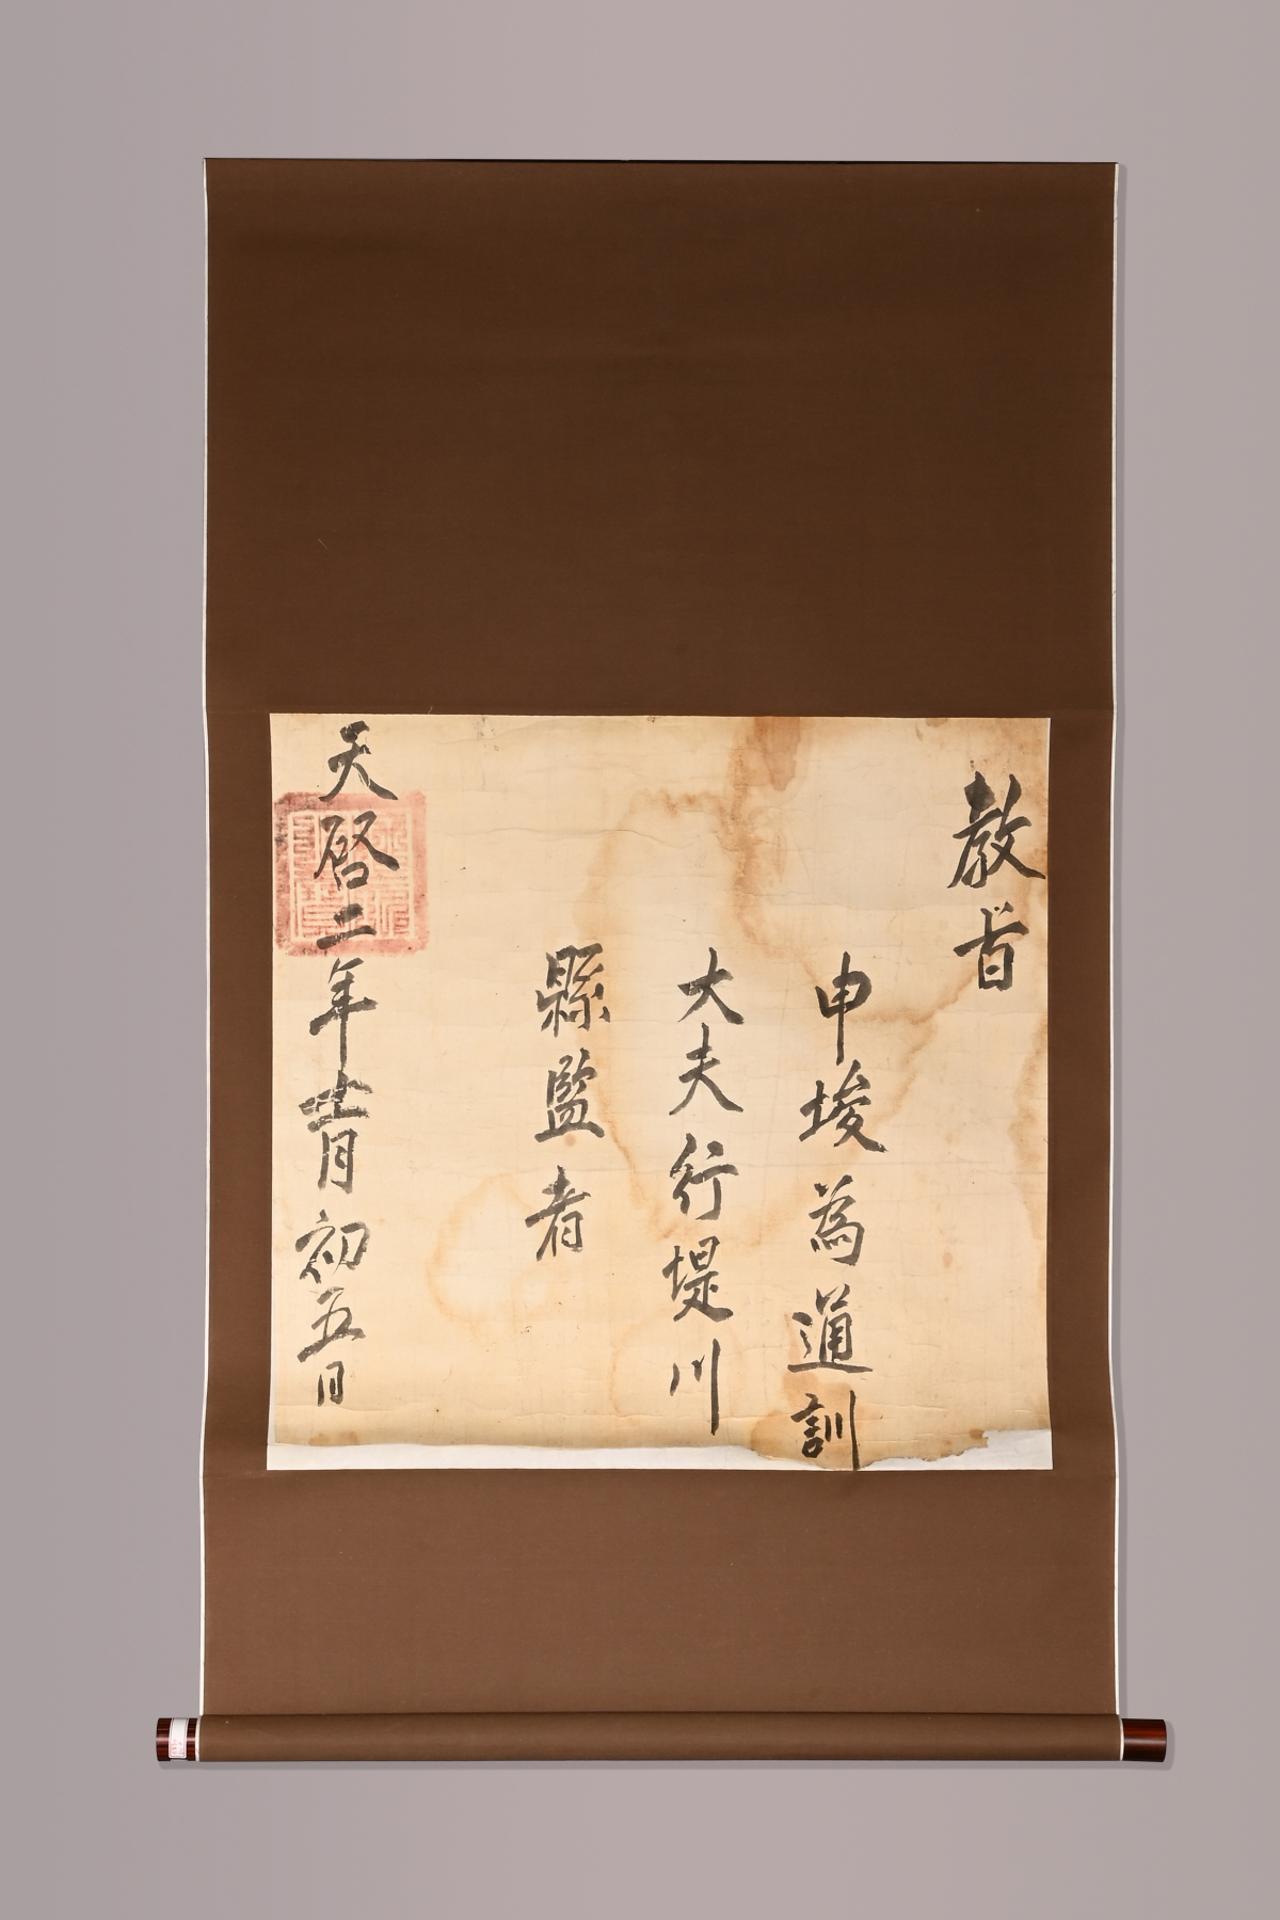 敎旨
申埈為通訓
大夫行堤川
縣監者
天啓二年十二月初五日